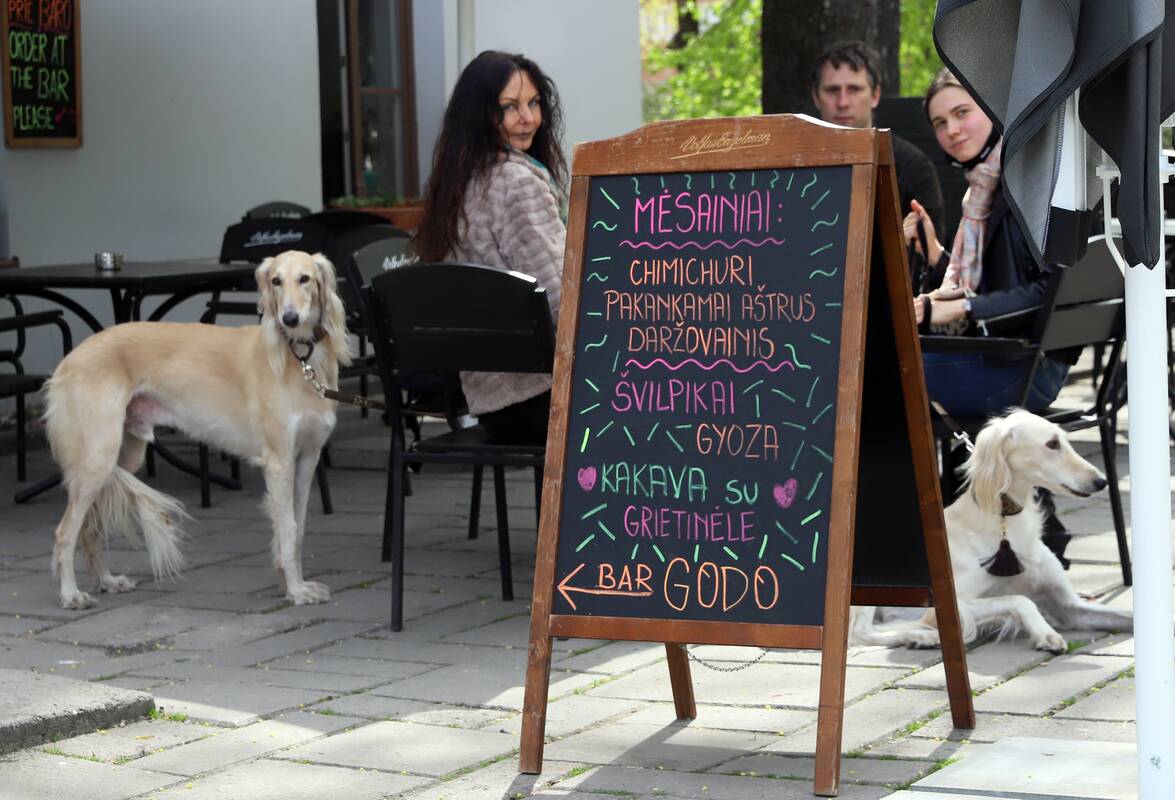 PRIE BARO
ORDER AT
THE BAR
PLEASE
VolfasEngelman
MĖSAINIAI:
CHIMICHURI
PAKANKAMAI AŠTRUS
DARŽOVAINIS
ŠVILPIKAI
GYOZA
KAKAVA SU
GRIETINĖLE
BAR GODO